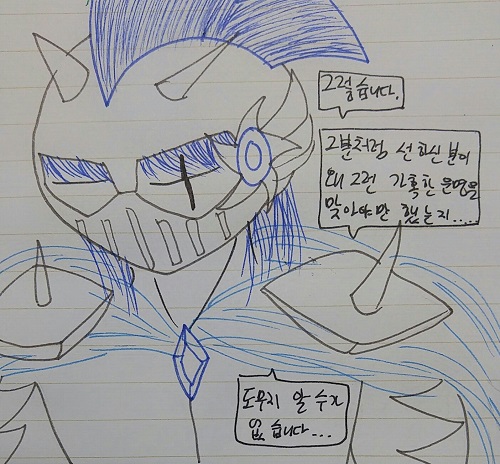 그렇습니다.
그분처럼 선하신 분이
왜 그런 가혹한 운명을
맞아야만 했는지....
도무지 알 수가
없습니다...